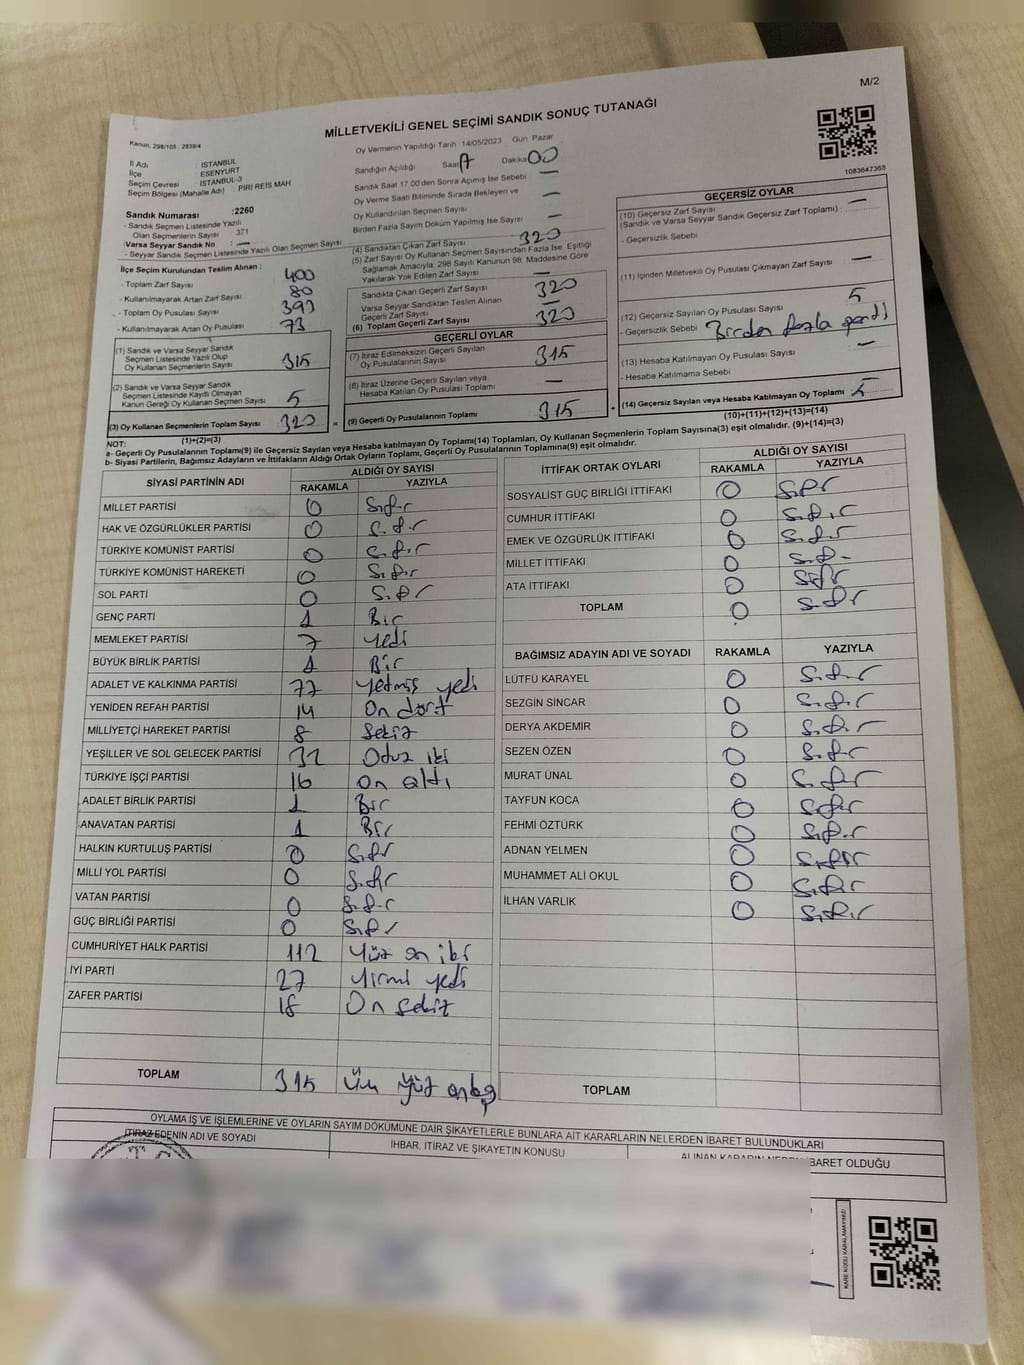 M/2
MİLLETVEKİLİ GENEL SEÇİMİ SANDIK SONUÇ TUTANAĞI
Kanun, 298/105 - 2839/4
İl Adı : İSTANBUL
İlçe : ESENYURT
Seçim Çevresi : İSTANBUL-3
Seçim Bölgesi (Mahalle Adı) : PİRİ REİS MAH
Sandık Numarası :2260
- Sandık Seçmen Listesinde Yazılı
Olan Seçmenlerin Sayısı 371
Varsa Seyyar Sandık No : —
- Seyyar Sandık Seçmen Listesinde Yazılı Olan Seçmen Sayısı
İlçe Seçim Kurulundan Teslim Alınan :
- Toplam Zarf Sayısı 400
- Kullanılmayarak Artan Zarf Sayısı 80
- Toplam Oy Pusulası Sayısı 393
- Kullanılmayarak Artan Oy Pusulası 73
(1) Sandık ve Varsa Seyyar Sandık
Seçmen Listesinde Yazılı Olup
Oy Kullanan Seçmenlerin Sayısı 315
(2) Sandık ve Varsa Seyyar Sandık
Seçmen Listesinde Kayıtlı Olmayan
Kanun Gereği Oy Kullanan Seçmen Sayısı 5
(3) Oy Kullanan Seçmenlerin Toplam Sayısı 320
(1)+(2)=(3)
Oy Vermenin Yapıldığı Tarih :14/05/2023 Gün: Pazar
Sandığın Açıldığı Saat 17 Dakika 00
Sandık Saat 17.00'den Sonra Açımış İse Sebebi —
Oy Verme Saati Bitiminde Sırada Bekleyen ve
Oy Kullandırılan Seçmen Sayısı —
Birden Fazla Sayım Döküm Yapılmış İse Sayısı —
(4) Sandıktan Çıkan Zarf Sayısı 320
(5) Zarf Sayısı Oy Kullanan Seçmen Sayısından Fazla İse, Eşitliği
Sağlamak Amacıyla, 298 Sayılı Kanunun 98. Maddesine Göre
Yakılarak Yok Edilen Zarf Sayısı —
Sandıkta Çıkan Geçerli Zarf Sayısı 320
Varsa Seyyar Sandıktan Teslim Alınan
Geçerli Zarf Sayısı —
(6) Toplam Geçerli Zarf Sayısı 320
GEÇERLİ OYLAR
(7) İtiraz Edilmeksizin Geçerli Sayılan
Oy Pusulalarının Sayısı 315
(8) İtiraz Üzerine Geçerli Sayılan veya
Hesaba Katılan Oy Pusulası Toplamı —
= (9) Geçerli Oy Pusulalarının Toplamı 315
1083647368
GEÇERSİZ OYLAR
(10) Geçersiz Zarf Sayısı —
(Sandık ve Varsa Seyyar Sandık Geçersiz Zarf Toplamı)
- Geçersizlik Sebebi
(11) İçinden Milletvekili Oy Pusulası Çıkmayan Zarf Sayısı —
(12) Geçersiz Sayılan Oy Pusulası Sayısı 5
- Geçersizlik Sebebi Birden fazla parti
(13) Hesaba Katılmayan Oy Pusulası Sayısı —
- Hesaba Katılmama Sebebi
+ (14) Geçersiz Sayılan veya Hesaba Katılmayan Oy Toplamı 5
(10)+(11)+(12)+(13)=(14)
NOT:
a- Geçerli Oy Pusulalarının Toplamı(9) ile Geçersiz Sayılan veya Hesaba katılmayan Oy Toplamı(14) Toplamları, Oy Kullanan Seçmenlerin Toplam Sayısına(3) eşit olmalıdır. (9)+(14)=(3)
b- Siyasi Partilerin, Bağımsız Adayların ve İttifakların Aldığı Ortak Oyların Toplamı, Geçerli Oy Pusulalarının Toplamına(9) eşit olmalıdır.
SİYASİ PARTİNİN ADI ALDIĞI OY SAYISI
RAKAMLA YAZIYLA
MİLLET PARTİSİ 0 Sıfır
HAK VE ÖZGÜRLÜKLER PARTİSİ 0 Sıfır
TÜRKİYE KOMÜNİST PARTİSİ 0 Sıfır
TÜRKİYE KOMÜNİST HAREKETİ 0 Sıfır
SOL PARTİ 0 Sıfır
GENÇ PARTİ 1 Bir
MEMLEKET PARTİSİ 7 yedi
BÜYÜK BİRLİK PARTİSİ 1 Bir
ADALET VE KALKINMA PARTİSİ 77 yetmiş yedi
YENİDEN REFAH PARTİSİ 14 On dört
MİLLİYETÇİ HAREKET PARTİSİ 8 Sekiz
YEŞİLLER VE SOL GELECEK PARTİSİ 32 Otuz iki
TÜRKİYE İŞÇİ PARTİSİ 16 On altı
ADALET BİRLİK PARTİSİ 1 Bir
ANAVATAN PARTİSİ 1 Bir
HALKIN KURTULUŞ PARTİSİ 0 Sıfır
MİLLİ YOL PARTİSİ 0 Sıfır
VATAN PARTİSİ 0 Sıfır
GÜÇ BİRLİĞİ PARTİSİ 0 Sıfır
CUMHURİYET HALK PARTİSİ 112 Yüz on iki
İYİ PARTİ 27 Yirmi yedi
ZAFER PARTİSİ 18 On sekiz
TOPLAM 315 Üç Yüz onbeş
İTTİFAK ORTAK OYLARI ALDIĞI OY SAYISI
RAKAMLA YAZIYLA
SOSYALİST GÜÇ BİRLİĞİ İTTİFAKI 0 Sıfır
CUMHUR İTTİFAKI 0 Sıfır
EMEK VE ÖZGÜRLÜK İTTİFAKI 0 Sıfır
MİLLET İTTİFAKI 0 Sıfır
ATA İTTİFAKI 0 Sıfır
TOPLAM 0 Sıfır
BAĞIMSIZ ADAYIN ADI VE SOYADI RAKAMLA YAZIYLA
LÜTFÜ KARAYEL 0 Sıfır
SEZGİN SİNCAR 0 Sıfır
DERYA AKDEMİR 0 Sıfır
SEZEN ÖZEN 0 Sıfır
MURAT ÜNAL 0 Sıfır
TAYFUN KOCA 0 Sıfır
FEHMİ ÖZTÜRK 0 Sıfır
ADNAN YELMEN 0 Sıfır
MUHAMMET ALİ OKUL 0 Sıfır
İLHAN VARLIK 0 Sıfır
TOPLAM
OYLAMA İŞ VE İŞLEMLERİNE VE OYLARIN SAYIM DÖKÜMÜNE DAİR ŞİKAYETLERLE BUNLARA AİT KARARLARIN NELERDEN İBARET BULUNDUKLARI
İTİRAZ EDENİN ADI VE SOYADI İHBAR, İTİRAZ VE ŞİKAYETİN KONUSU ALINAN KARARIN NEDEN İBARET OLDUĞU
KARE KODU KARALAMAYINIZ!